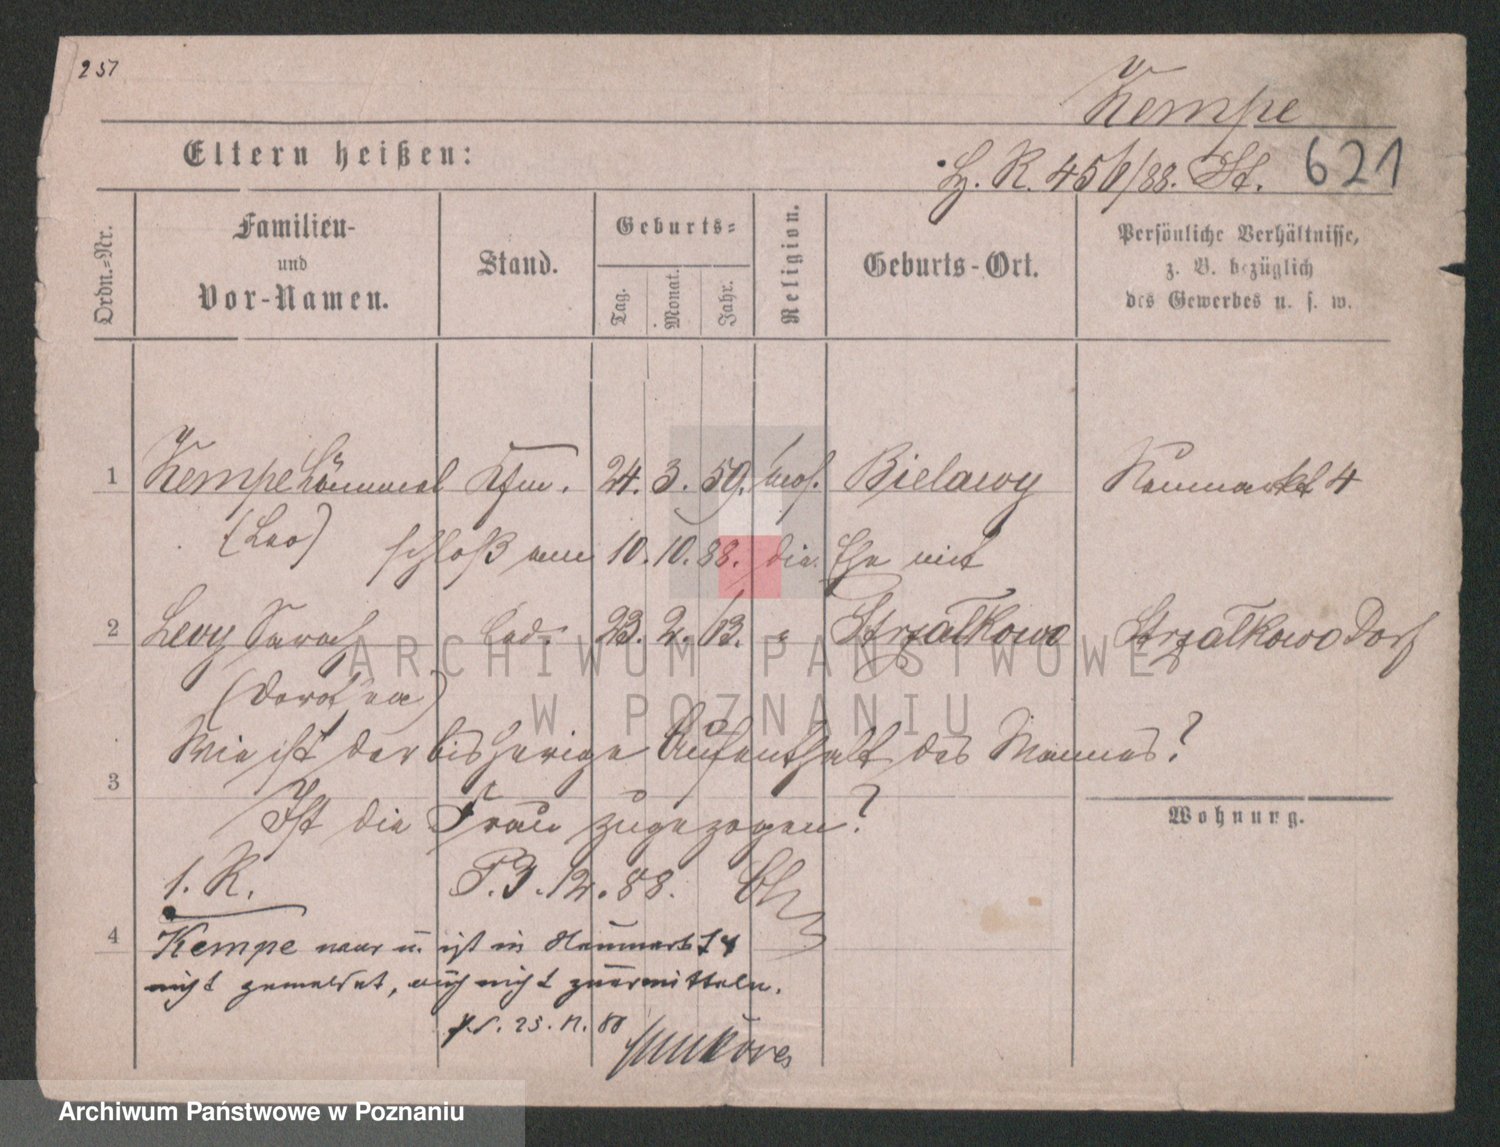 257
Kempe
Eltern heißen:
H. R. 458/88. St. 621
Ordn.-Nr.
Familien-
und
Vor-Namen.
Stand.
Geburts-
Tag.
Monat.
Jahr.
Religion.
Geburts-Ort.
Persönliche Verhältnisse,
z. B. bezüglich
des Gewerbes u. s. w.
1 Kempe Lämmel Kfm. 24. 3. 59. mos. Bielawy Neumarkt 4
(Leo) schloß am 10. 10. 88. die Ehe mit
2 Levy Sarah led. 23. 2. 63. " Strzałkowo Strzałkowo Dorf
(Dorothea)
Wie ist der bisherige Aufenthalt des Mannes?
3
Ist die Frau zugezogen?
Wohnung.
1. R. P. 3. 12. 88.
4 Kempe war u. ist in Neumarkt 4
nicht gemeldet, auch nicht zu ermitteln.
ARCHIWUM PAŃSTWOWE
W POZNANIU
Archiwum Państwowe w Poznaniu